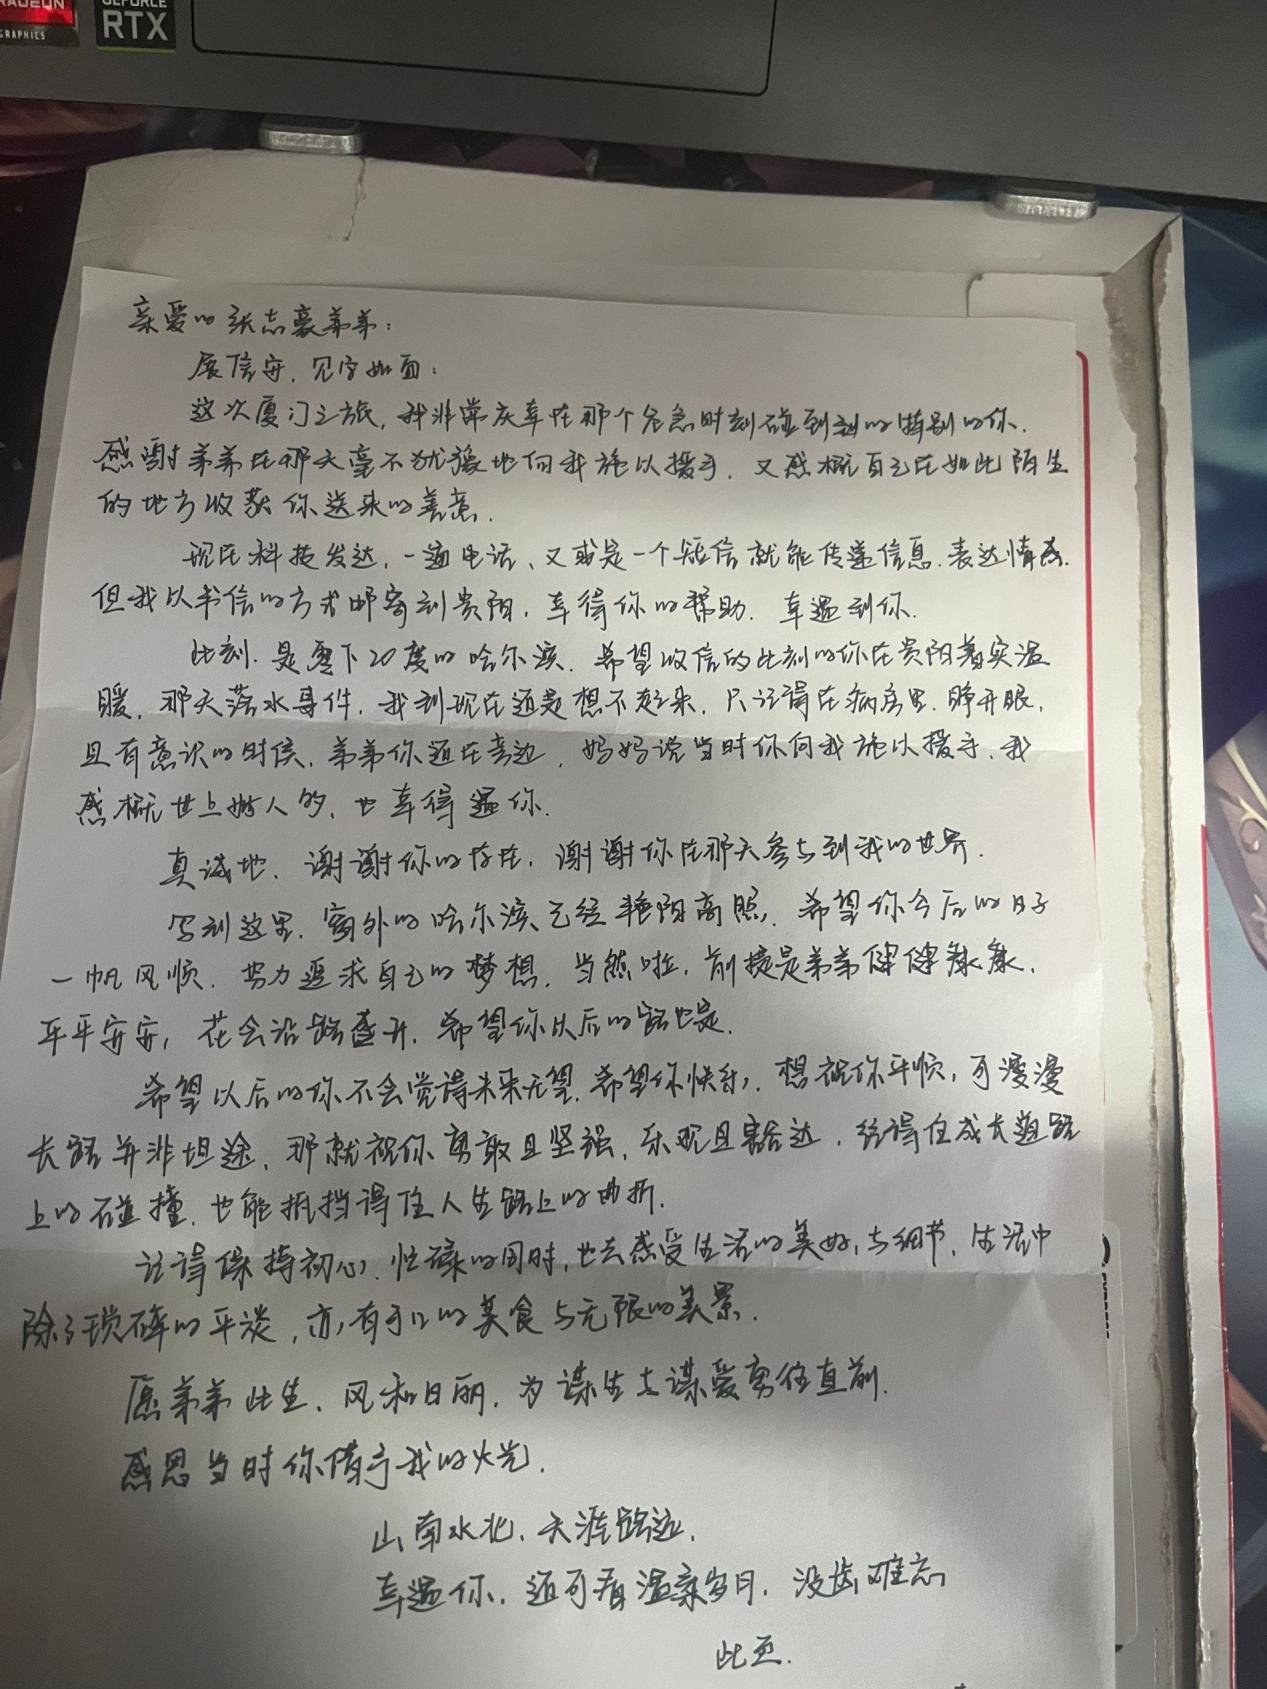 RADEON
GRAPHICS
GEFORCE
RTX
亲爱的张志豪弟弟：
展信安，见字如面：
这次厦门之旅，我非常庆幸在那个危急时刻碰到到的特别的你.
感谢弟弟在那天毫不犹豫地向我施以援手，又感概自己在如此陌生
的地方收获你送来的善意.
现在科技发达，一通电话、又或是一个短信就能传递信息.表达情感.
但我以书信的方式邮寄到贵阳，幸得你的帮助.幸遇到你.
此刻.是零下20度的哈尔滨.希望收信的此刻的你在贵阳着实温
暖.那天落水事件.我到现在还是想不起来.只记得在病房里.睁开眼，
且有意识的时候.弟弟你还在旁边.妈妈说当时你向我施以援手.我
感概世上好人的、也幸得遇你.
真诚地.谢谢你的存在.谢谢你在那天参与到我的世界.
写到这里.窗外的哈尔滨已经艳阳高照.希望你今后的日子
一帆风顺.努力追求自己的梦想.当然啦，前提是弟弟健健康康.
平平安安，花会沿路盛开.希望你以后的路也是.
希望以后的你不会觉得未来无望.希望你快乐，想祝你平顺，可漫漫
长路并非坦途，那就祝你勇敢且坚强，乐观且豁达，经得住成长道路
上的碰撞.也能抵挡得住人生路上的曲折.
记得保持初心，忙碌的同时，也去感受生活的美好，与细节.生活中
除了琐碎的平淡，亦有可口的美食与无限的美景.
愿弟弟此生、风和日丽.为谋生与谋爱勇往直前.
感恩当时你借予我的火光.
山南水北、天涯路远.
幸遇你.还可有温柔岁月.没齿难忘
此至.